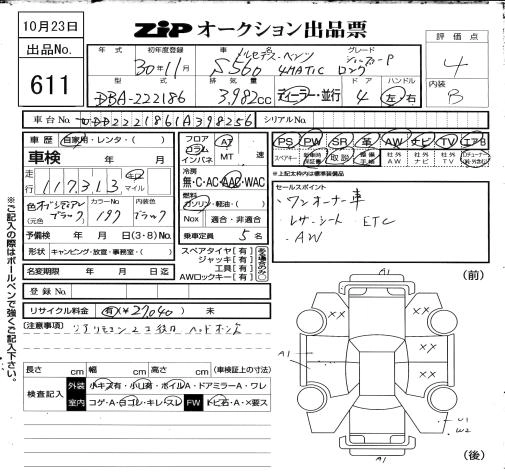 10月23日
出品No.
611
ZiP オークション出品票
評価点
4
内装
B
年式 初年度登録 車 グレード
30年11月 メルセデス・ベンツ S560 4MATIC ロング
型式 排気量 ドア ハンドル
DBA-222186 3,982cc ディーラー・並行 4 左・右
車台No. WDD2221861A398256 シリアルNo.
車歴 自家用・レンタ・( )
車検 年 月
走行 117,313 キロ マイル
色 オブシディアンブラック (元色 ) カラーNo. 197 内装色 ブラック
予備検 年 月 日(3・8)No.
形状 キャンピング・放置・事務室・( )
名変期限 年 月 日迄
登録No.
リサイクル料金 有 ¥27,040 未
フロア コラム インパネ AT MT 速
冷房 無・C・AC・AAC・WAC
燃料 ガソリン・軽油・( )
Nox 適合・非適合
乗車定員 5 名
スペアタイヤ[有]
ジャッキ[有]
工具[有]
AWロックキー[有]
PS PW SR 革 AW ナビ TV エアB
スペアキー 取説 社外AW 社外ナビ 社外TV
※上記太枠内は標準装備品
セールスポイント
・ワンオーナー車
・レザーシート ETC
・AW
[注意事項]
長さ cm 幅 cm 高さ cm (車検証上の寸法)
検査記入 外装 小キズ有・小凹有・ボイルA・ドアミラーA・ワレ
室内 コゲ・A・白コレ・キレ・スレ FW トビ石・A・×要ス
※ご記入の際はボールペンで強くご記入下さい。
(前)
A1
××
××
××
A1
××
U1
W2
A1
(後)